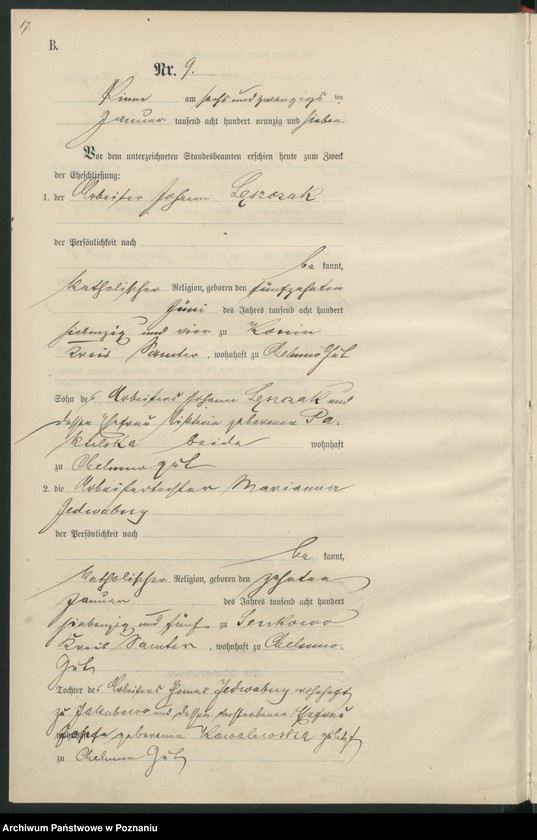 17.
B.
Nr. 9.
Pinne am sechs und zwanzigsten
Januar tausend acht hundert neunzig und sieben.
Vor dem unterzeichneten Standesbeamten erschien heute zum Zweck
der Eheschließung:
1. der Arbeiter Johann Leszczak
der Persönlichkeit nach
be kannt,
katholischer Religion, geboren den fünfzehnten
Juni des Jahres tausend acht hundert
siebenzig und vier zu Konin
Kreis Samter, wohnhaft zu Chelmno Gut
Sohn des Arbeiters Johann Leszczak und
dessen Ehefrau Viktoria geborenen
beide wohnhaft
zu Chelmno Gut
2. die Arbeitertochter Marianna
Jedwabny
der Persönlichkeit nach
be kannt,
katholischer Religion, geboren den zehnten
Januar des Jahres tausend acht hundert
siebenzig und fünf zu Senkowo
Kreis Samter, wohnhaft zu Chelmno
Gut
Tochter des Arbeiters Tomas Jedwabny wohnhaft
zu Jakubowo und dessen verstorbenen Ehefrau
Josefa geborenen Kowalewska zuletzt
zu Chelmno Gut
Archiwum Państwowe w Poznaniu